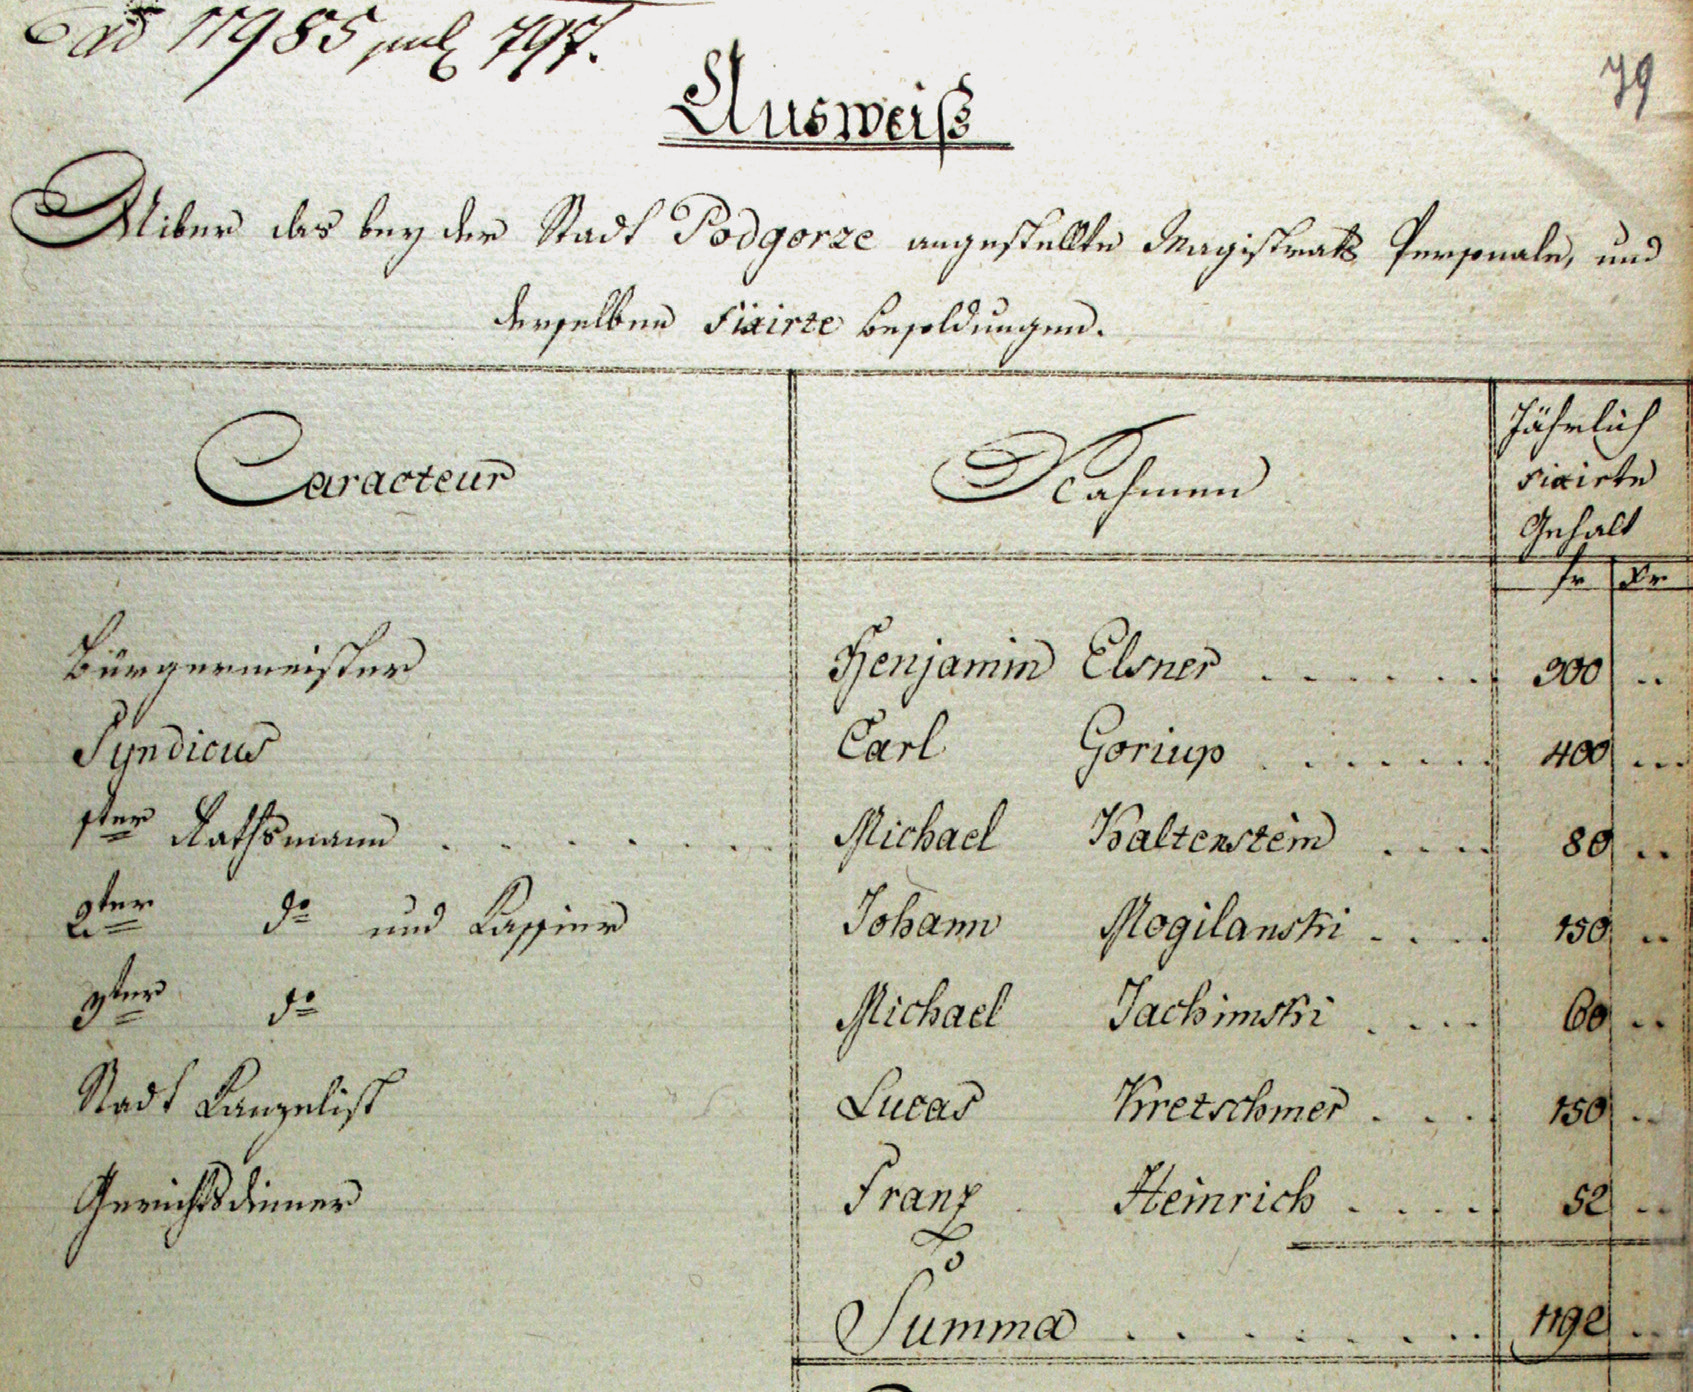 ad 11985 jul 797.
79
Ausweiß
Uiber das bey der Stadt Podgorze angestellte Magistrats Personale, und
derselben fixirte Besoldungen.
Caracteur Nahmen Jährlich
fixirte
Gehalt
fr xr
Bürgermeister Benjamin Elsner . . . . . . 300 ..
Syndicus Carl Goriup . . . . . . 400 ...
1ter Rathsmann . . . . . . Michael Kaltenstein . . . . 80 ..
2ter do und Kassier Johann Mogilanski . . . . 150 ..
3ter do Michael Jachimski . . . . 60 ..
Stadt Kanzelist Lucas Kretschmer . . . 150 ..
Gerichtsdiener Franz Heinrich . . . . 52 ..
Summa . . . . . . . . 1192 ..